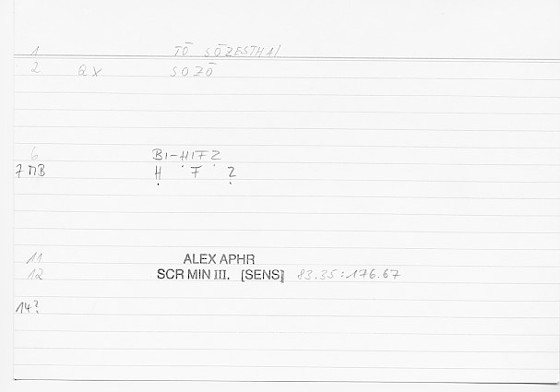 1 TŌ SŌZESTHAI
2 QX SOZŌ
6 BI-HIFZ
7 MB H F Z
11 ALEX APHR
12 SCR MIN III. [SENS] 83.35:176.67
14?